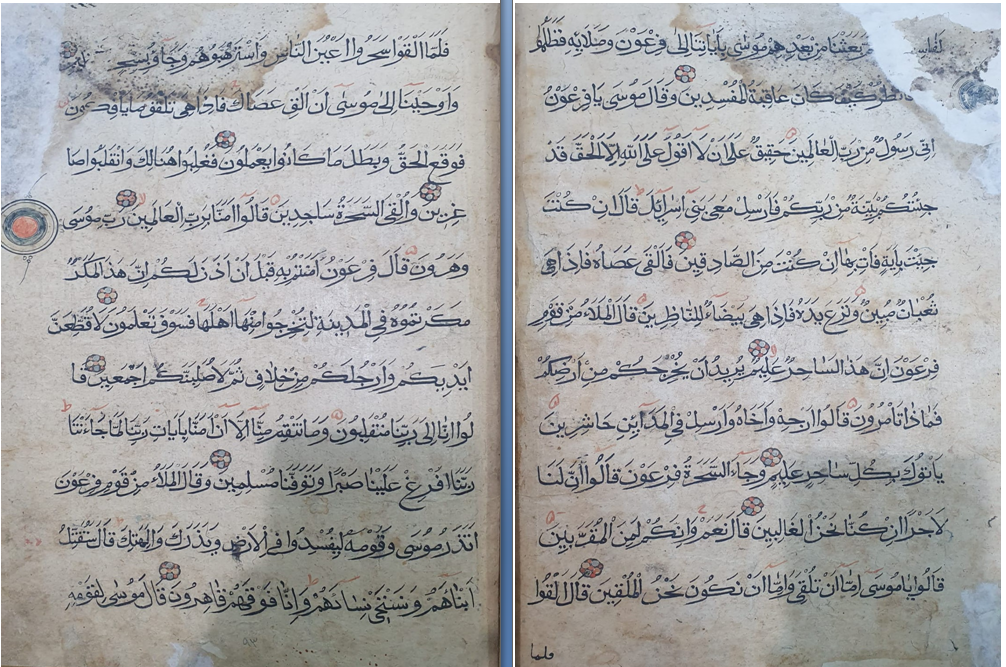 بعثنا من بعدهم موسى باياتنا الى فرعون وملائه فظلموا
فانظر كيف كان عاقبة المفسدين وقال موسى يا فرعون
اني رسول من رب العالمين حقيق على ان لا اقول على الله الا الحق قد
جئتكم ببينة من ربكم فارسل معي بني اسرائل قال ان كنت
جئت باية فات بها ان كنت من الصادقين فالقى عصاه فاذا هي
ثعبان مبين ونزع يده فاذا هي بيضاء للناظرين قال الملاء من قوم
فرعون ان هذا لساحر عليم يريد ان يخرجكم من ارضكم
فماذا تامرون قالوا ارجه واخاه وارسل في المداين حاشرين
ياتوك بكل ساحر عليم وجاء السحرة فرعون قالوا ان لنا
لاجرا ان كنا نحن الغالبين قال نعم وانكم لمن المقربين
قالوا يا موسى اما ان تلقي واما ان نكون نحن الملقين قال القوا
فلما
فلما القوا سحروا اعين الناس واسترهبوهم وجاؤ بسحر
واوحينا الى موسى ان الق عصاك فاذا هي تلقف ما يافكون
فوقع الحق وبطل ما كانوا يعملون فغلبوا هنالك وانقلبوا صا
غرين والقي السحرة ساجدين قالوا امنا برب العالمين رب موسى
وهرون قال فرعون امنتم به قبل ان اذن لكم ان هذا لمكر
مكرتموه في المدينة لتخرجوا منها اهلها فسوف تعلمون لاقطعن
ايديكم وارجلكم من خلاف ثم لاصلبنكم اجمعين قا
لوا انا الى ربنا منقلبون وما تنقم منا الا ان امنا بايات ربنا لما جاءتنا
ربنا افرغ علينا صبرا وتوفنا مسلمين وقال الملاء من قوم فرعون
اتذر موسى وقومه ليفسدوا في الارض ويذرك والهتك قال سنقتل
ابناءهم ونستحيي نساءهم وانا فوقهم قاهرون قال موسى لقومه